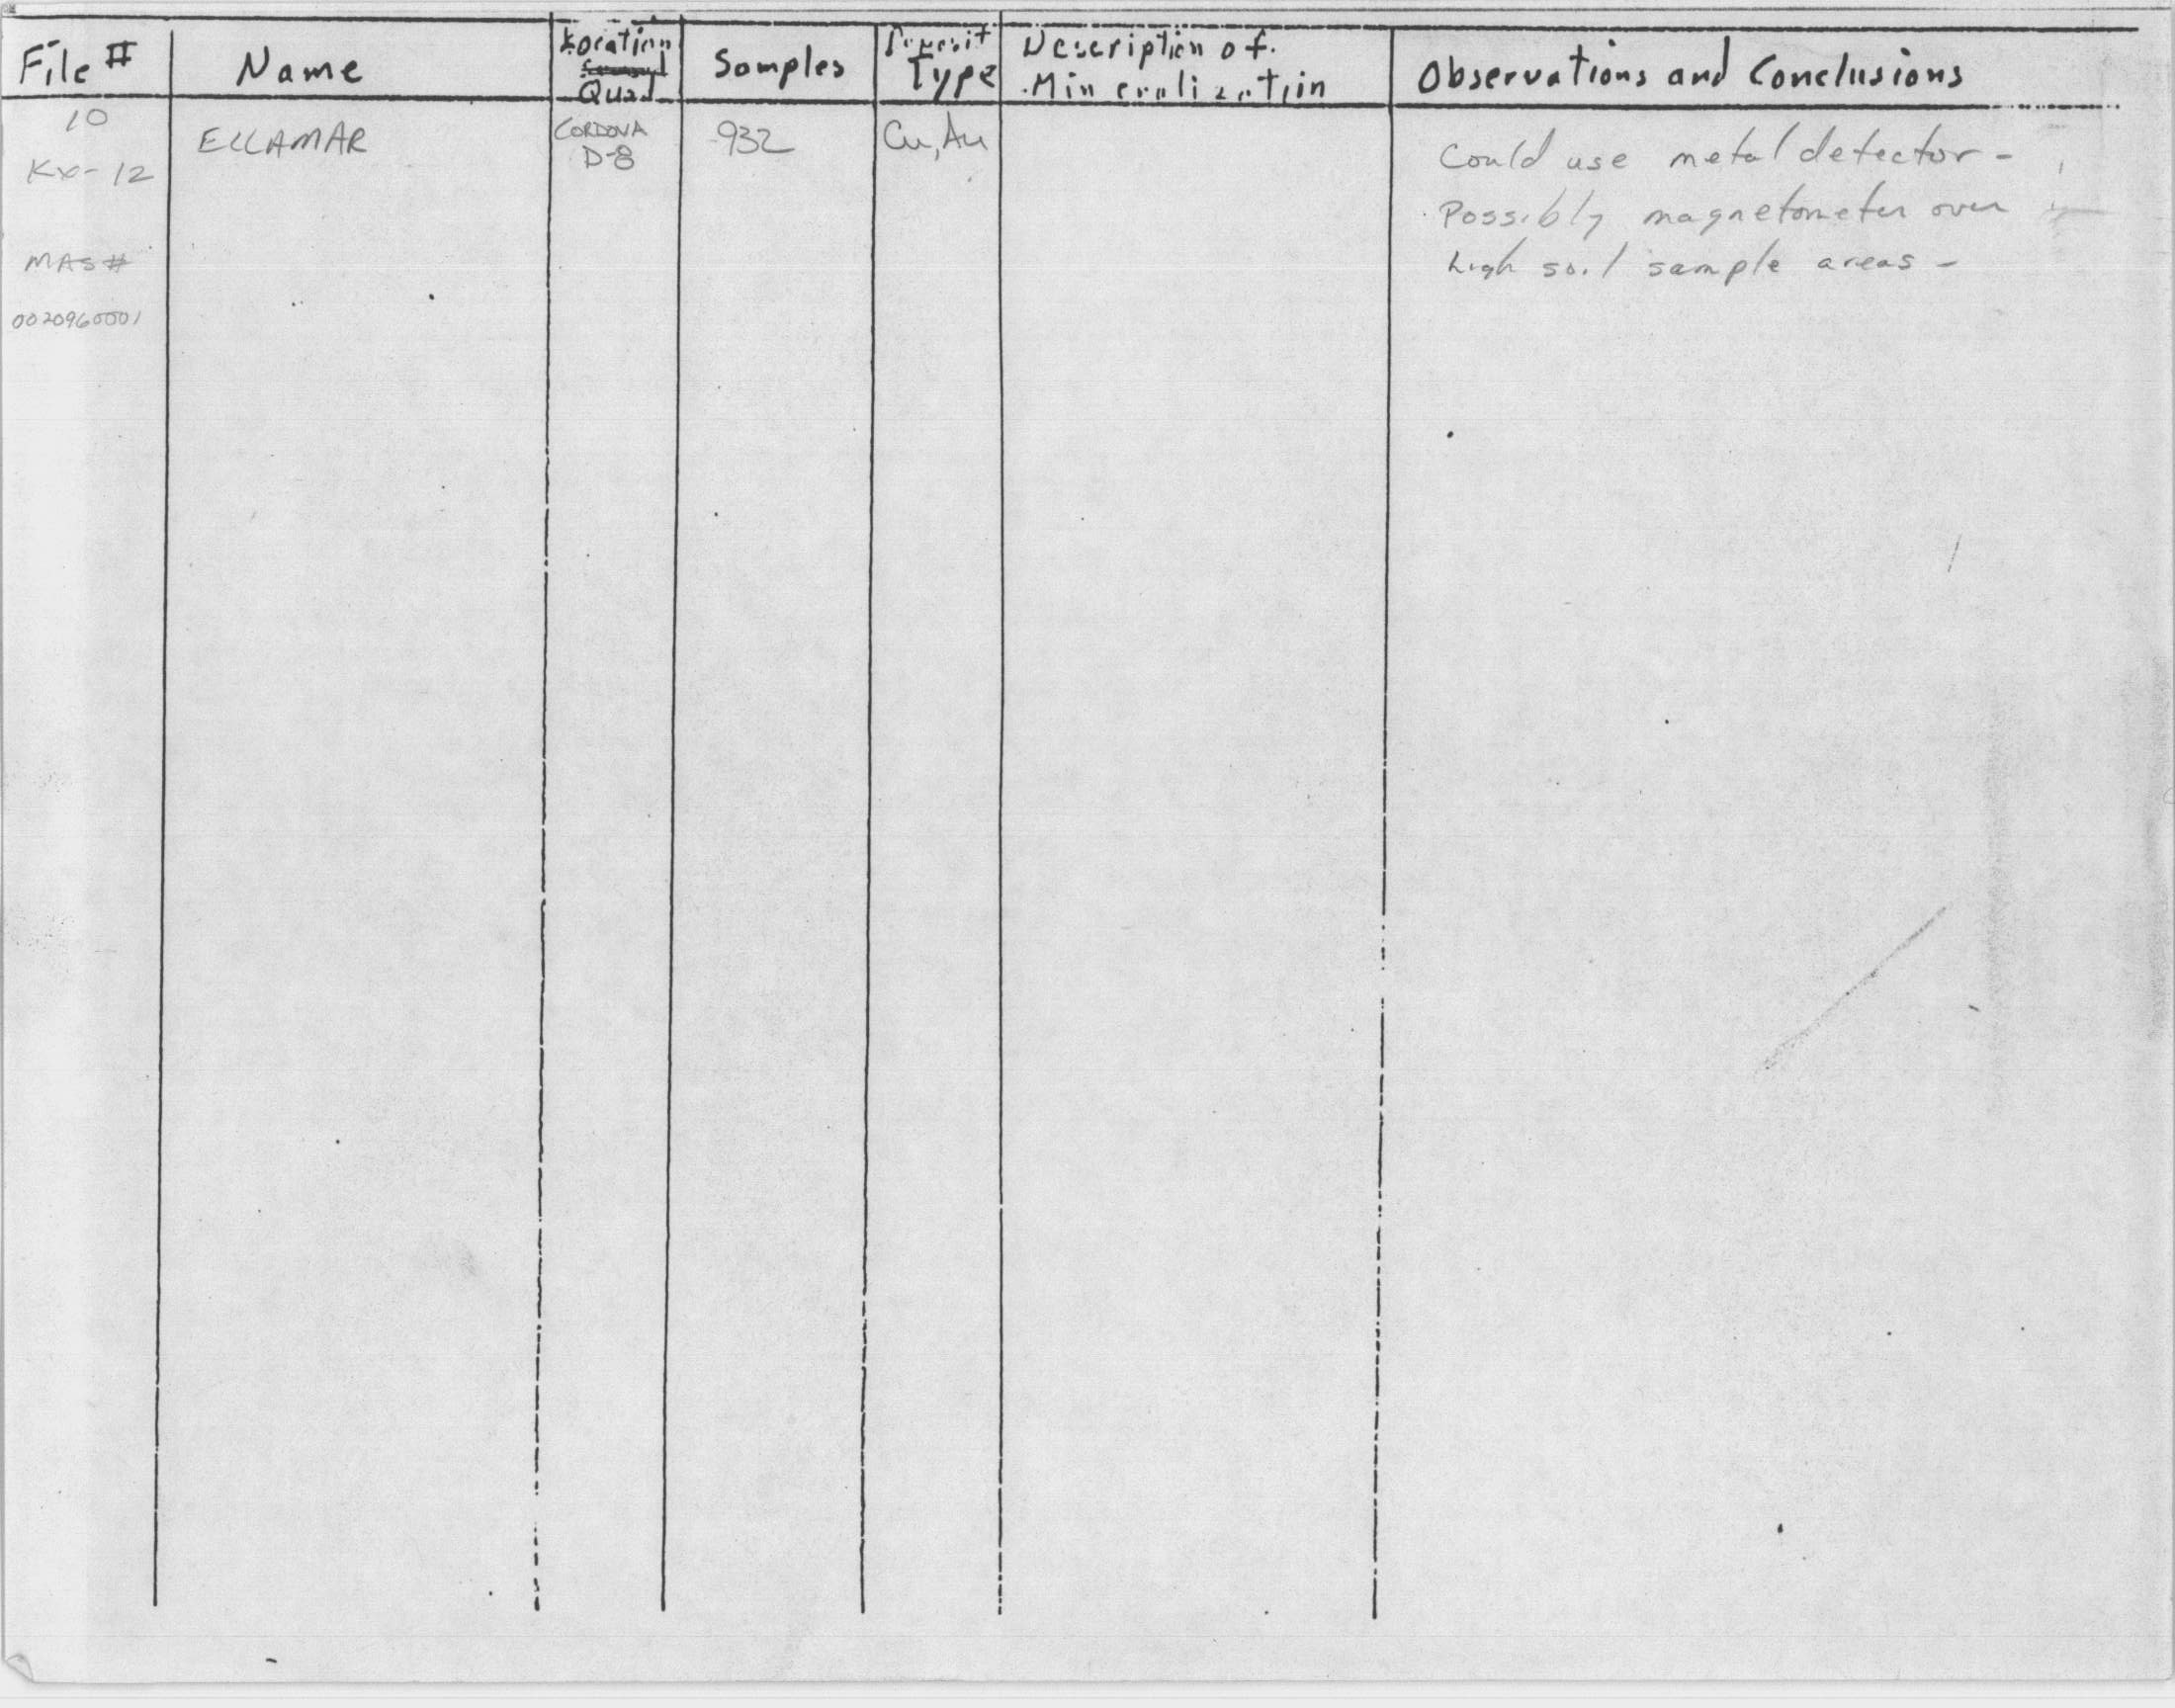 File #
Name
Location
Quad
Samples
Deposit
Type
Description of
Mineralization
Observations and Conclusions
10
KX-12
MAS#
0020960001
ELLAMAR
CORDOVA
D-8
932
Cu, Au
Could use metal detector -
Possibly magnetometer over
high soil sample areas -